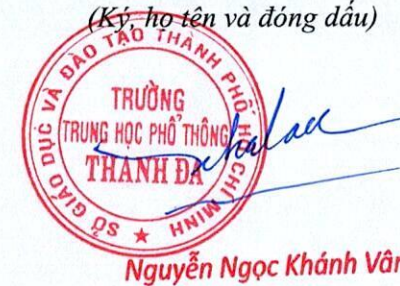 (Ký, họ tên và đóng dấu)
SỞ GIÁO DỤC VÀ ĐÀO TẠO THÀNH PHỐ HỒ CHÍ MINH
TRƯỜNG
TRUNG HỌC PHỔ THÔNG
THANH ĐA
Nguyễn Ngọc Khánh Vân